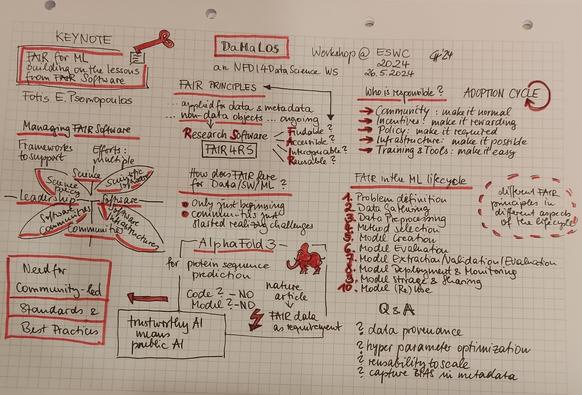 KEYNOTE
FAIR for ML
building on the lessons
from FAIR Software
Fotis E. Psomopoulos
Managing FAIR Software
Frameworks
to support
Efforts:
multiple
Science
Science
Policy
Scientific
Software
Leadership
Software
Communities
Communities
Software
Infrastructures
Need for
Community-led
Standards &
Best Practices
DaMaLOS
Workshop @ ESWC
2024
26.5.2024
an NFDI4DataScience WS
FAIR PRINCIPLES
... applied for data & metadata
... non-data objects ... ongoing
Research Software
FAIR4RS
Findable?
Accessible?
Interoperable?
Reusable?
How does FAIR fare
for Data/SW/ML?
Only just beginning
communities just
started realizing challenges
AlphaFold 3
for protein sequence
prediction
Code? - NO
Model? - NO
nature
article
FAIR data
as requirement
trustworthy AI
means
public AI
Who is responsible?
ADOPTION CYCLE
Community: make it normal
Incentives: make it rewarding
Policy: make it required
Infrastructure: make it possible
Training & Tools: make it easy
FAIR in the ML lifecycle
1. Problem definition
2. Data Gathering
3. Data Preprocessing
4. Method selection
5. Model Creation
6. Model Evaluation
7. Model Extraction/Validation/Evaluation
8. Model Deployment & Monitoring
9. Model Storage & Sharing
10. Model (Re)Use
different FAIR
principles in
different aspects
of the lifecycle!
Q&A
? data provenance
? hyper parameter optimization
? reusability to scale
? capture BIAS in metadata